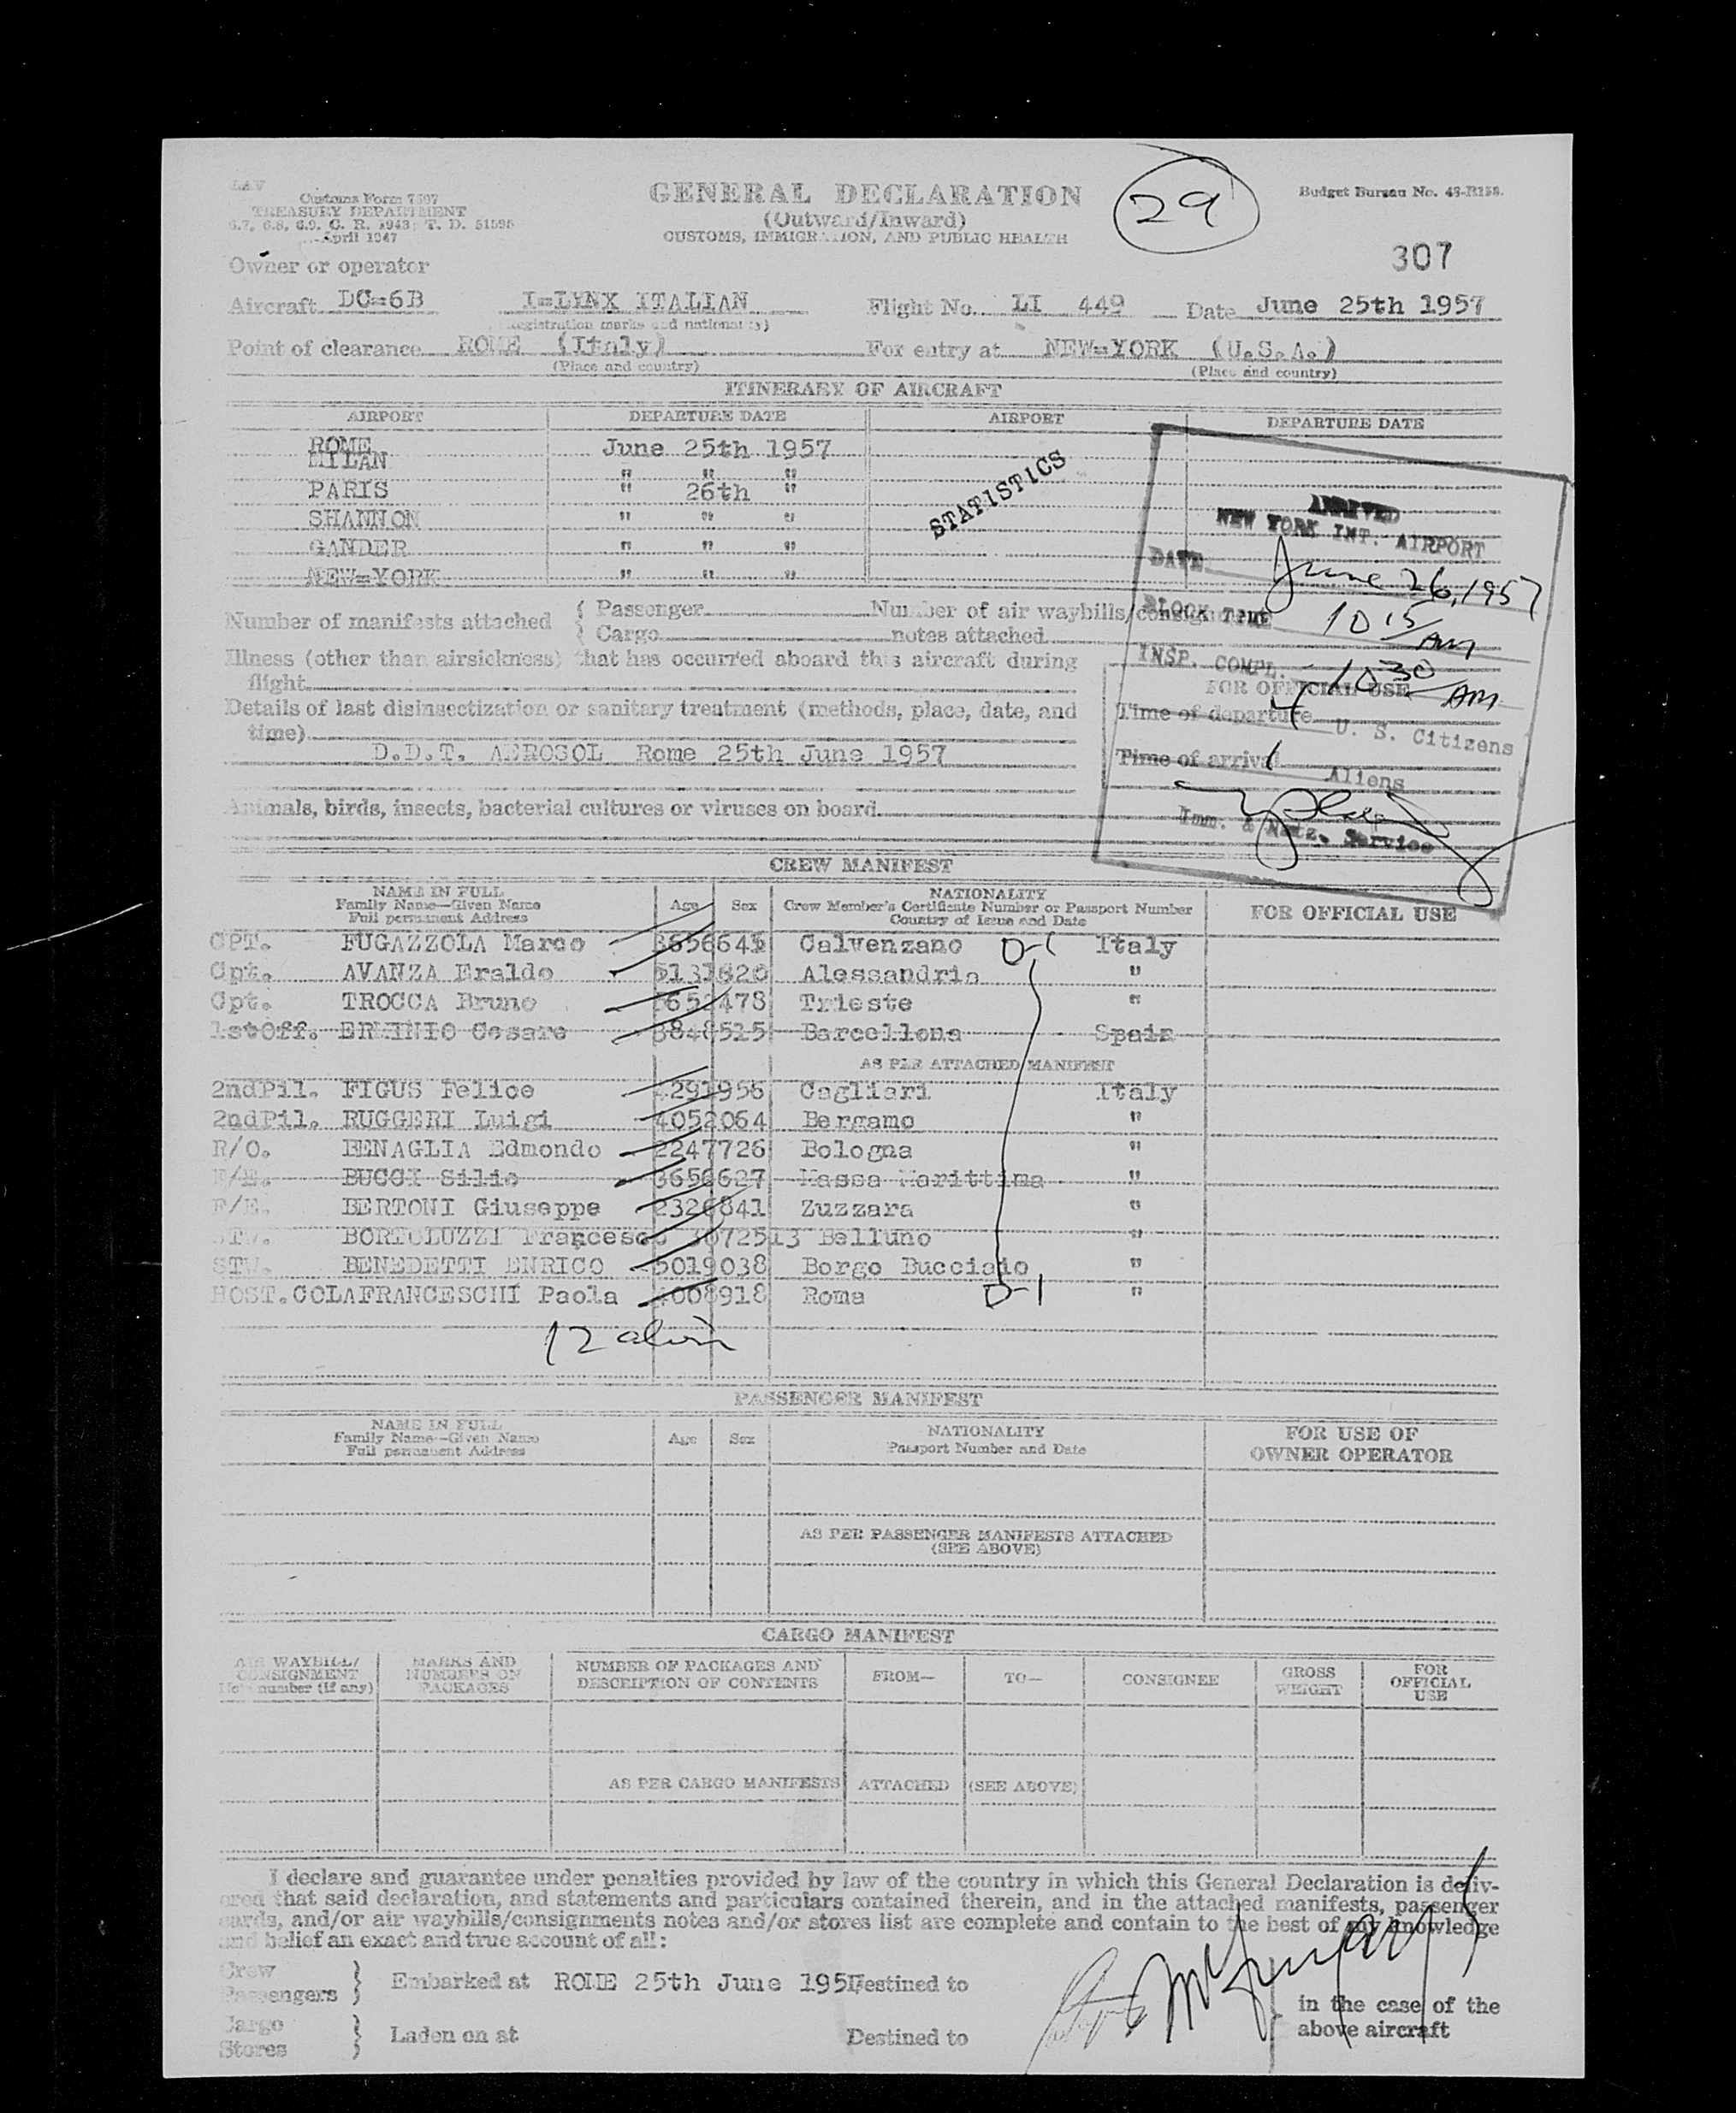 LAV
Customs Form 7507
TREASURY DEPARTMENT
6.7, 6.8, 6.9, C. R. 1943; T. D. 51595
April 1947
GENERAL DECLARATION
(Outward/Inward)
CUSTOMS, IMMIGRATION, AND PUBLIC HEALTH
29
Budget Bureau No. 43-R158.
307
Owner or operator
Aircraft DC=6B I=LYNX ITALIAN Flight No. LI 449 Date June 25th 1957
(Registration marks and nationality)
Point of clearance ROME (Italy) For entry at NEW=YORK (U.S.A.)
(Place and country) (Place and country)
ITINERARY OF AIRCRAFT
AIRPORT DEPARTURE DATE AIRPORT DEPARTURE DATE
ROME June 25th 1957
MILAN " " "
PARIS " 26th "
SHANNON " " "
GANDER " " "
NEW=YORK " " "
STATISTICS
ARRIVED
NEW YORK INT. AIRPORT
DATE June 26, 1957
BLOCK TIME 10 15 AM
INSP. COMPL. 10 30 AM
U. S. Citizens
Aliens
Imm. & Natz. Service
Number of manifests attached { Passenger Number of air waybills/consignment
{ Cargo notes attached
Illness (other than airsickness) that has occurred aboard this aircraft during
flight
FOR OFFICIAL USE
Details of last disinsectization or sanitary treatment (methods, place, date, and
time)
Time of departure
D.D.T. AEROSOL Rome 25th June 1957
Time of arrival
Animals, birds, insects, bacterial cultures or viruses on board
CREW MANIFEST
NAME IN FULL
Family Name—Given Name
Full permanent Address
Age Sex
NATIONALITY
Crew Member's Certificate Number or Passport Number
Country of Issue and Date
FOR OFFICIAL USE
CPT. FUGAZZOLA Marco Calvenzano D-1 Italy
Cpt. AVANZA Eraldo 5131820 Alessandria "
Cpt. TROCCA Bruno Trieste "
1stOff. ERMINIO Cesare 3848515 Barcellona Spain
AS PER ATTACHED MANIFEST
2ndPil. FIGUS Felice Cagliari Italy
2ndPil. RUGGERI Luigi 4052064 Bergamo "
R/O. BENAGLIA Edmondo 2247726 Bologna "
F/E. BUCCI Silio 3656627 Massa Marittima "
F/E. BERTONI Giuseppe 2326841 Zuzzara "
STW. BORTOLUZZI Francesco 3072513 Belluno "
STW. BENEDETTI ENRICO 5019038 Borgo Bucciaio "
HOST. COLAFRANCESCHI Paola Roma D-1 "
12 alien
PASSENGER MANIFEST
NAME IN FULL
Family Name—Given Name
Full permanent Address
Age Sex
NATIONALITY
Passport Number and Date
FOR USE OF
OWNER OPERATOR
AS PER PASSENGER MANIFESTS ATTACHED
(SEE ABOVE)
CARGO MANIFEST
AIR WAYBILL/
CONSIGNMENT
Note number (if any)
MARKS AND
NUMBERS ON
PACKAGES
NUMBER OF PACKAGES AND
DESCRIPTION OF CONTENTS
FROM— TO— CONSIGNEE
GROSS
WEIGHT
FOR
OFFICIAL
USE
AS PER CARGO MANIFESTS ATTACHED (SEE ABOVE)
I declare and guarantee under penalties provided by law of the country in which this General Declaration is deliv-
ered that said declaration, and statements and particulars contained therein, and in the attached manifests, passenger
cards, and/or air waybills/consignments notes and/or stores list are complete and contain to the best of my knowledge
and belief an exact and true account of all:
Crew
Passengers } Embarked at ROME 25th June 1957 Destined to
in the case of the
above aircraft
Cargo
Stores } Laden on at Destined to